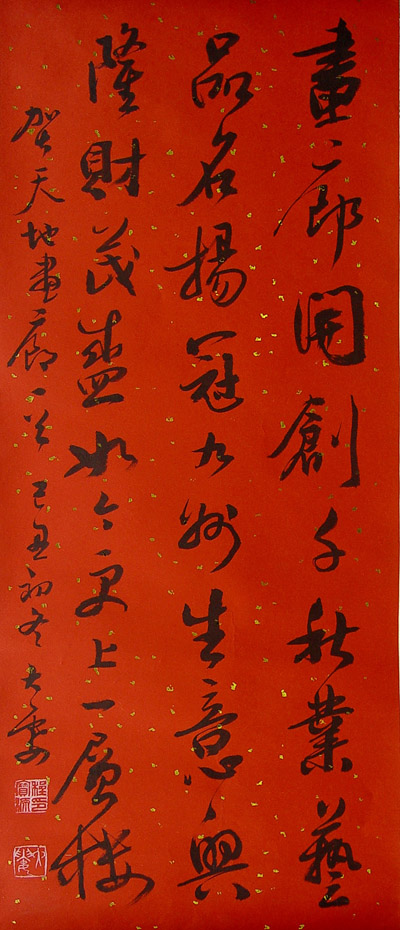 畫廊開創千秋業藝
品名揚冠九州生意興
隆財茂盛如今更上一層樓
賀天地畫廊一首己丑初冬大